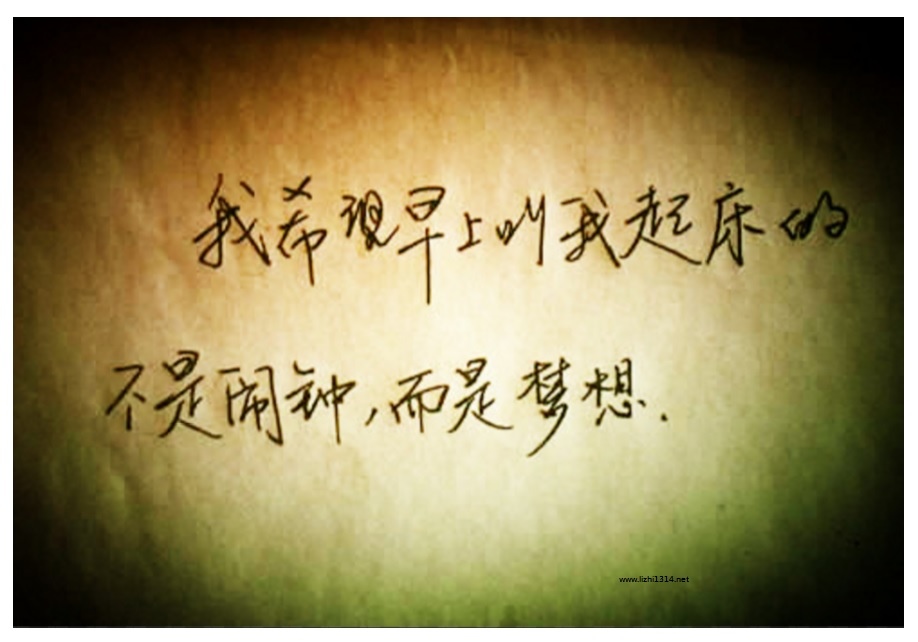 我希望早上叫我起床的
不是闹钟，而是梦想.
www.lizhi1314.net